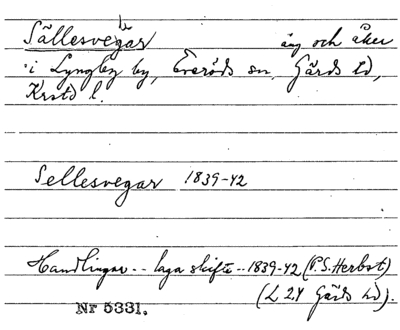 Sällesvegar äng och åker
i Lyngby by, Everöds sn, Gärds hd,
Krstd l.
Sellesvegar 1839-42
Handlingar -- laga skifte -- 1839-42 (P.S. Herbst)
(L 24 Gärds hd).
Nr 5331.